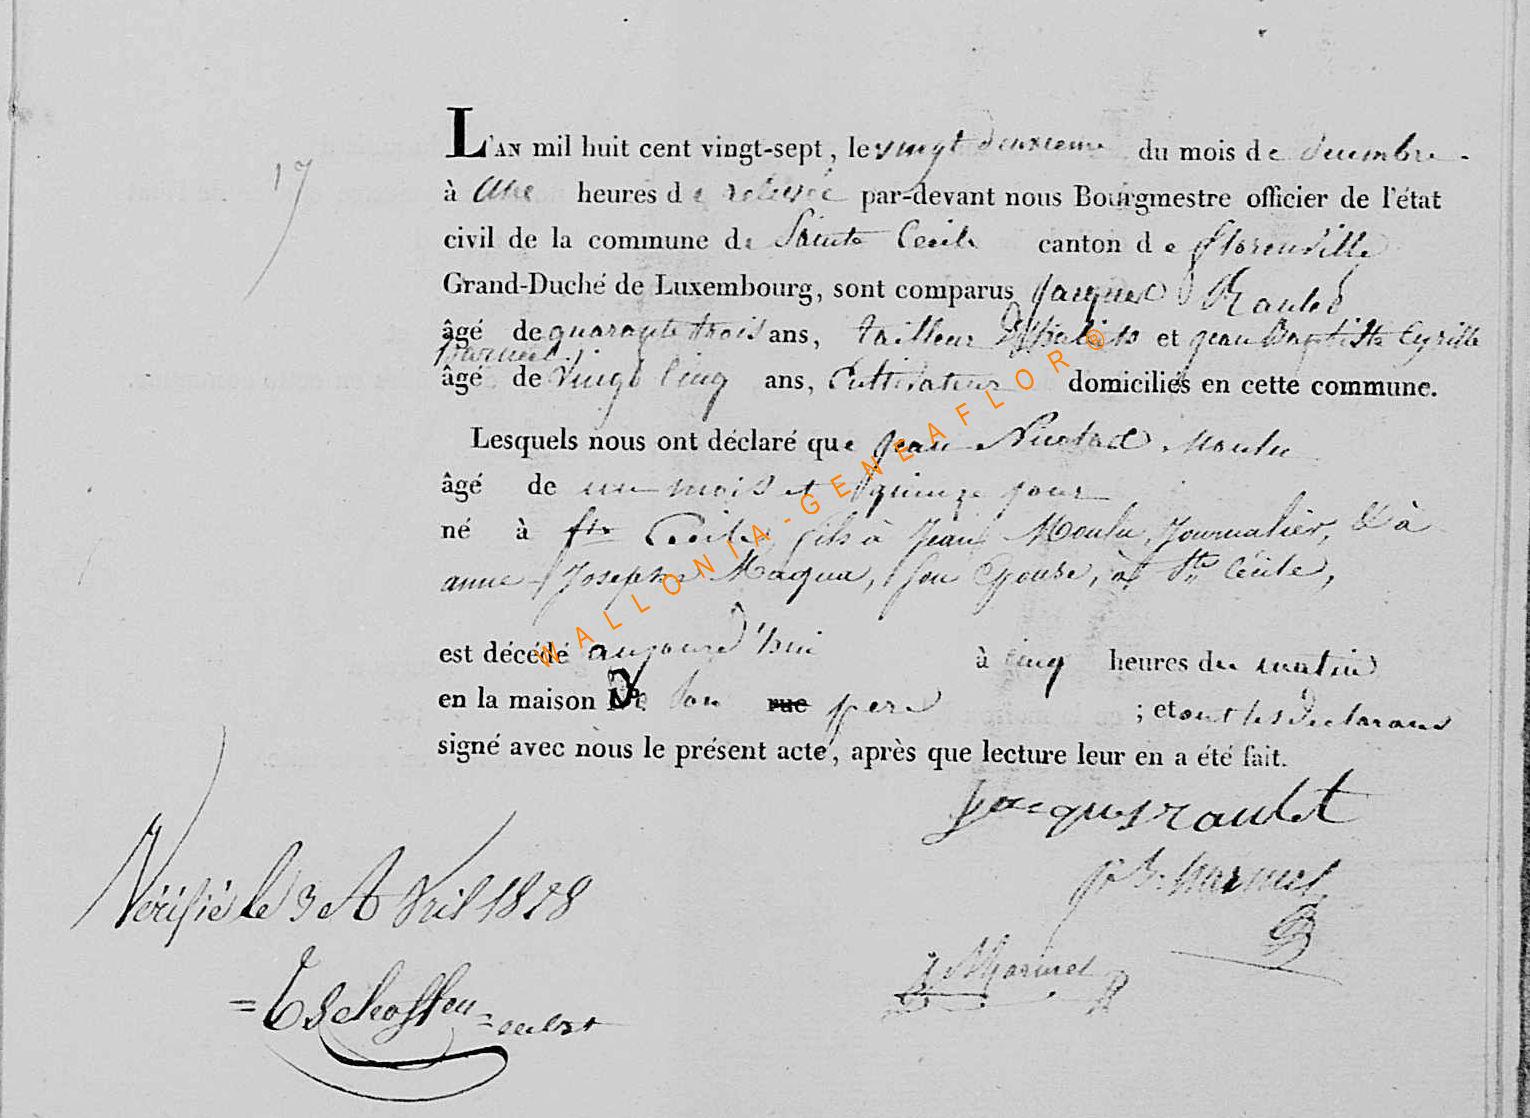 17
L'AN mil huit cent vingt-sept, le vingt deuxieme du mois de decembre
à une heures de relevée par-devant nous Bourgmestre officier de l'état
civil de la commune de Sainte Cecile canton de florenville
Grand-Duché de Luxembourg, sont comparus Jacques Raulet
âgé de quarante trois ans, tailleur d'habits et jean Baptiste Cyrille
âgé de vingt cinq ans, Cultivateur domiciliés en cette commune.
Lesquels nous ont déclaré que jean Nicolas Moulu
âgé de un mois et quinze jour
né à Ste Cecile, fils à Jean Moulu, Journalier, & à
anne Josephe Maqua, son Epouse, à Ste Cécile,
est décédé aujourd'hui à cinq heures du matin
en la maison De son rue pere ; et ont les declarans
signé avec nous le présent acte, après que lecture leur en a été fait.
Jacques raulet
Vérifié le 3 Avril 1828